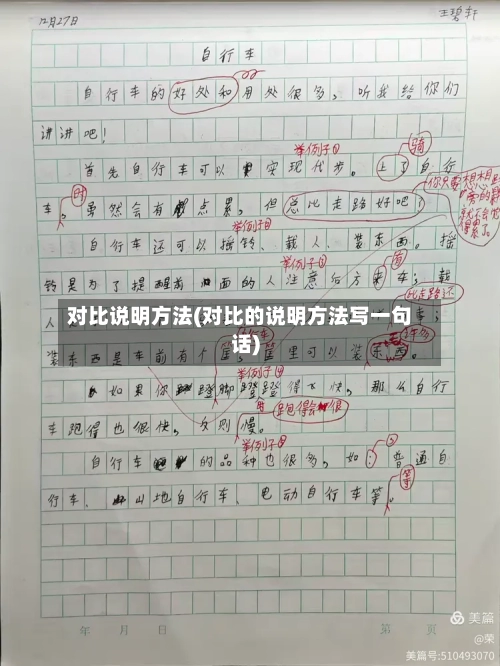 12月27日
王碧轩
自行车
自行车的好处和用处很多，听我给你们
讲讲吧！
举例子①
骑
首先自行车可以实现代步。上了自行
你只要想想
车，虽然会有点累。但总比走路好吧！
举例子②
自行车还可以摇铃、载人、装东西。摇
举例子③
铃是为了提醒前面的人注意后方来车；载
比走路还
对比说明方法(对比的说明方法写一句
话)
装东西是车前有个筐，筐里可以装东西。
举例子④
如果你蹬脚蹬蹬得飞快，那么自行
跑得会很
车跑得也很快，否则慢。
举例子⑤
自行车的品种也很多，如：普通自
等
行车、山地自行车、电动自行车等。
年 月 日
第 页
美篇
@荣
美篇号:510493070